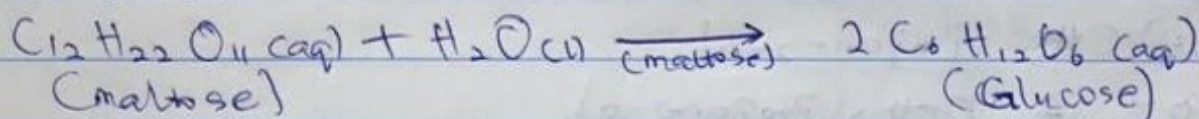 C₁₂ H₂₂ O₁₁ (aq) + H₂O(l) (maltose)→ 2 C₆ H₁₂ O₆ (aq)
(maltose) (Glucose)